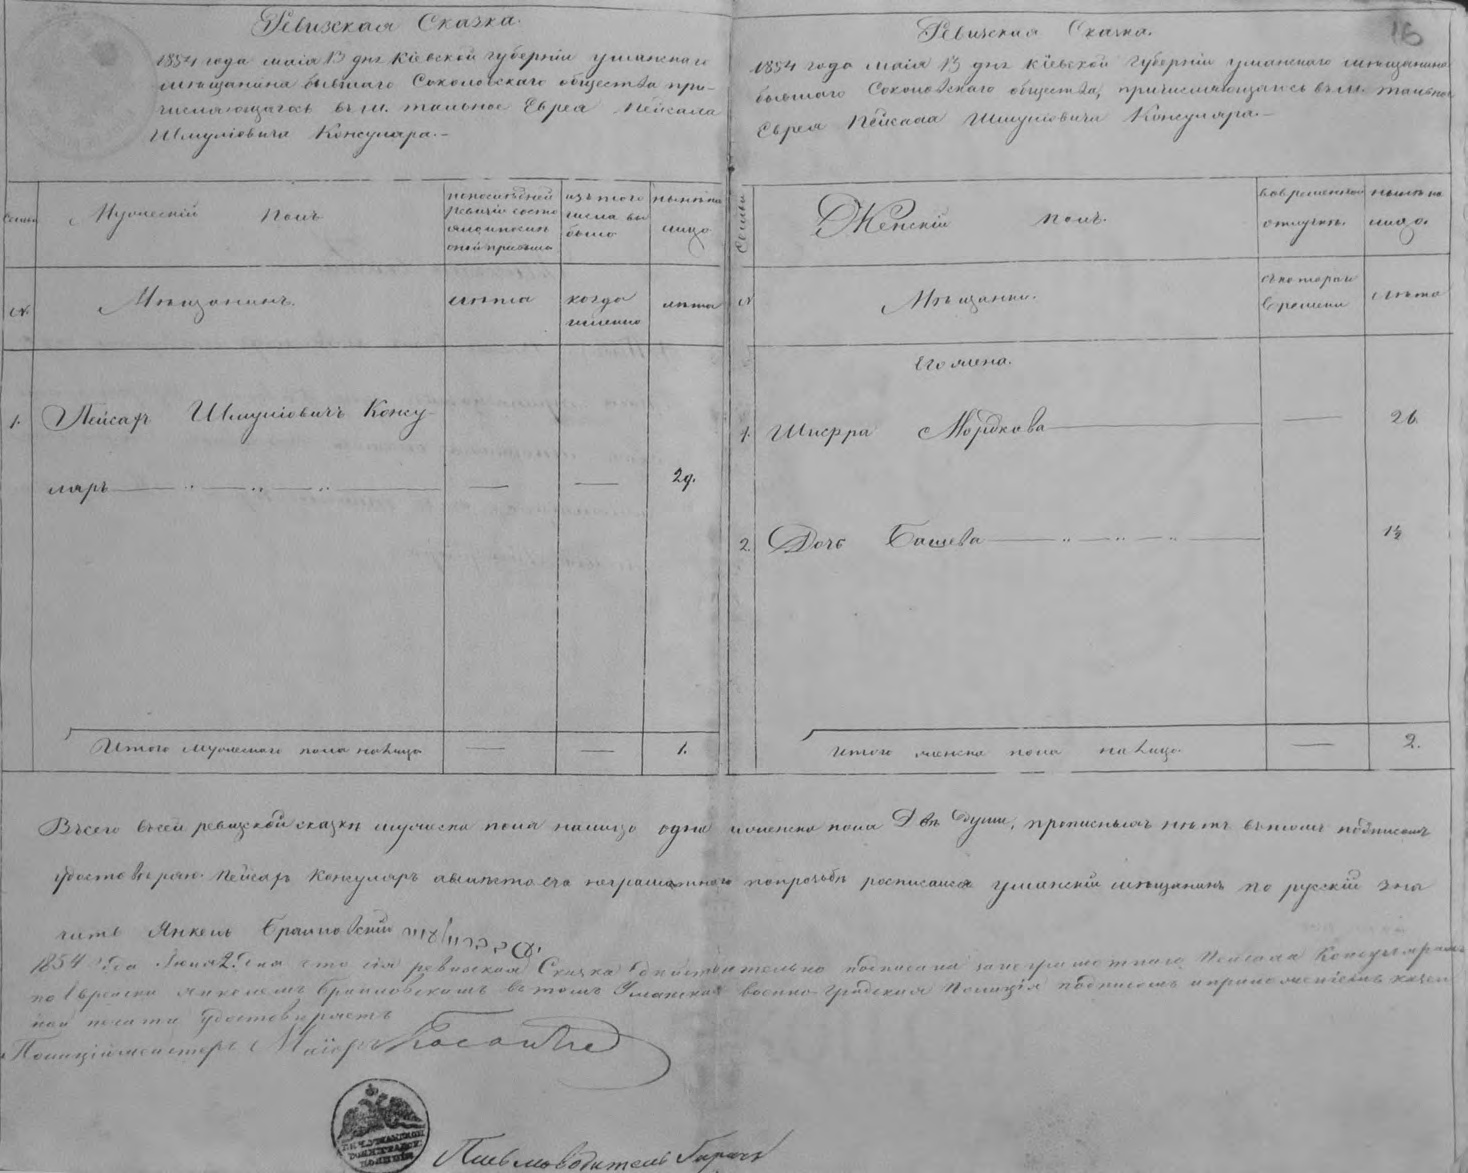 Ревизская Сказка.
1854 года маія 13 дня Кіевской губерніи уманского
мѣщанина бывшаго Соколовскаго общества при-
числяющагося въ м. тальное Еврея Пейсаха
Шмуліовича Консуляра.-
Семьи Мужескій полъ
по послѣдней ревизіи состо
изъ того числа вы было
нынѣ на лицо
№. Мѣщанинъ. лѣта когда именно лѣта
1. Пейсахъ Шмуліовичъ Консу-
ляръ — — 29.
Итого мужескаго пола налицо — — 1.
Ревизская Сказка.
16
1854 года маія 13 дня Кіевской губерніи уманского мѣщанина
бывшаго Соколовскаго общества, причисляющагося въ м. тальное
Еврея Пейсаха Шмуліовича Консуляра.-
Семьи Женскій полъ.
во временной отлучкѣ.
нынѣ на лицо.
№ Мѣщанки. съ котораго времени лѣта
Его жена.
1. Шифра Мордкова — — 26.
2. Дочь Башева — 1½
Итого женска пола налицо. — 2.
Всего въ сей ревизской сказкѣ мужеска пола налицо одна и женска пола двѣ души, прописныхъ нѣтъ въ томъ подписомъ
удостовѣряю. Пейсахъ Консуляръ а вмѣсто его неграмотного по прозьбѣ росписался уманскій мѣщанинъ по русскій зна
читъ Янкель Браиловскій
1854 года Іюня 2 дня что сія ревизская Сказка дѣйствительно подписана за неграмотнаго Пейсаха Консуляра
по Еврейски Янкелемъ Браиловскимъ въ томъ Уманская военно-градская Полиція подписомъ и приложеніемъ казен
ной печати удостовѣряетъ
Полиціймейстеръ Маіоръ
Письмоводитель